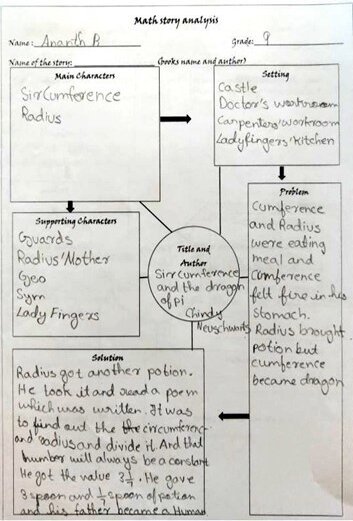 Math story analysis
Name: Ananth B Grade: 9
Name of the story: (books name and author)
Main Characters
SirCumference
Radius
Setting
Castle
Doctor's workroom
Carpenters' workroom
Ladyfingers' kitchen
Supporting Characters
Guards
Radius' Mother
Geo
Sym
Lady Fingers
Title and
Author
Sircumference
and the dragon
of pi
Chindy
Neuschwants
Problem
Cumference
and Radius
were eating
meal and
Cumference
felt fire in his
Stomach.
Radius brought
potion but
cumference
became dragon
Solution
Radius got another potion.
He took it and read a poem
which was written. It was
to find out the the circumference
and radius and divide it. And that
number will always be a constant
He got the value 3 1/7. He gave
3 spoon and 1/7 spoon of potion
and his father became a Human